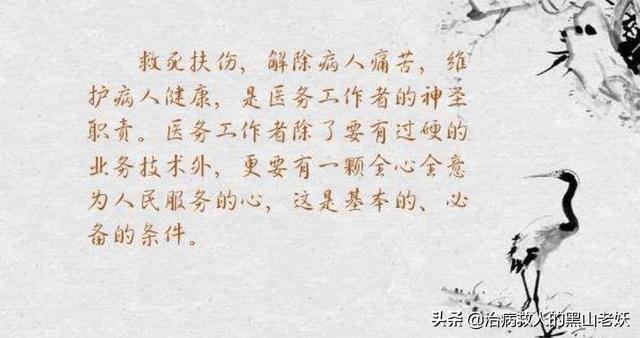 救死扶伤，解除病人痛苦，维
护病人健康，是医务工作者的神圣
职责。医务工作者除了要有过硬的
业务技术外，更要有一颗全心全意
为人民服务的心，这是基本的、必
备的条件。
头条 @治病救人的黑山老妖